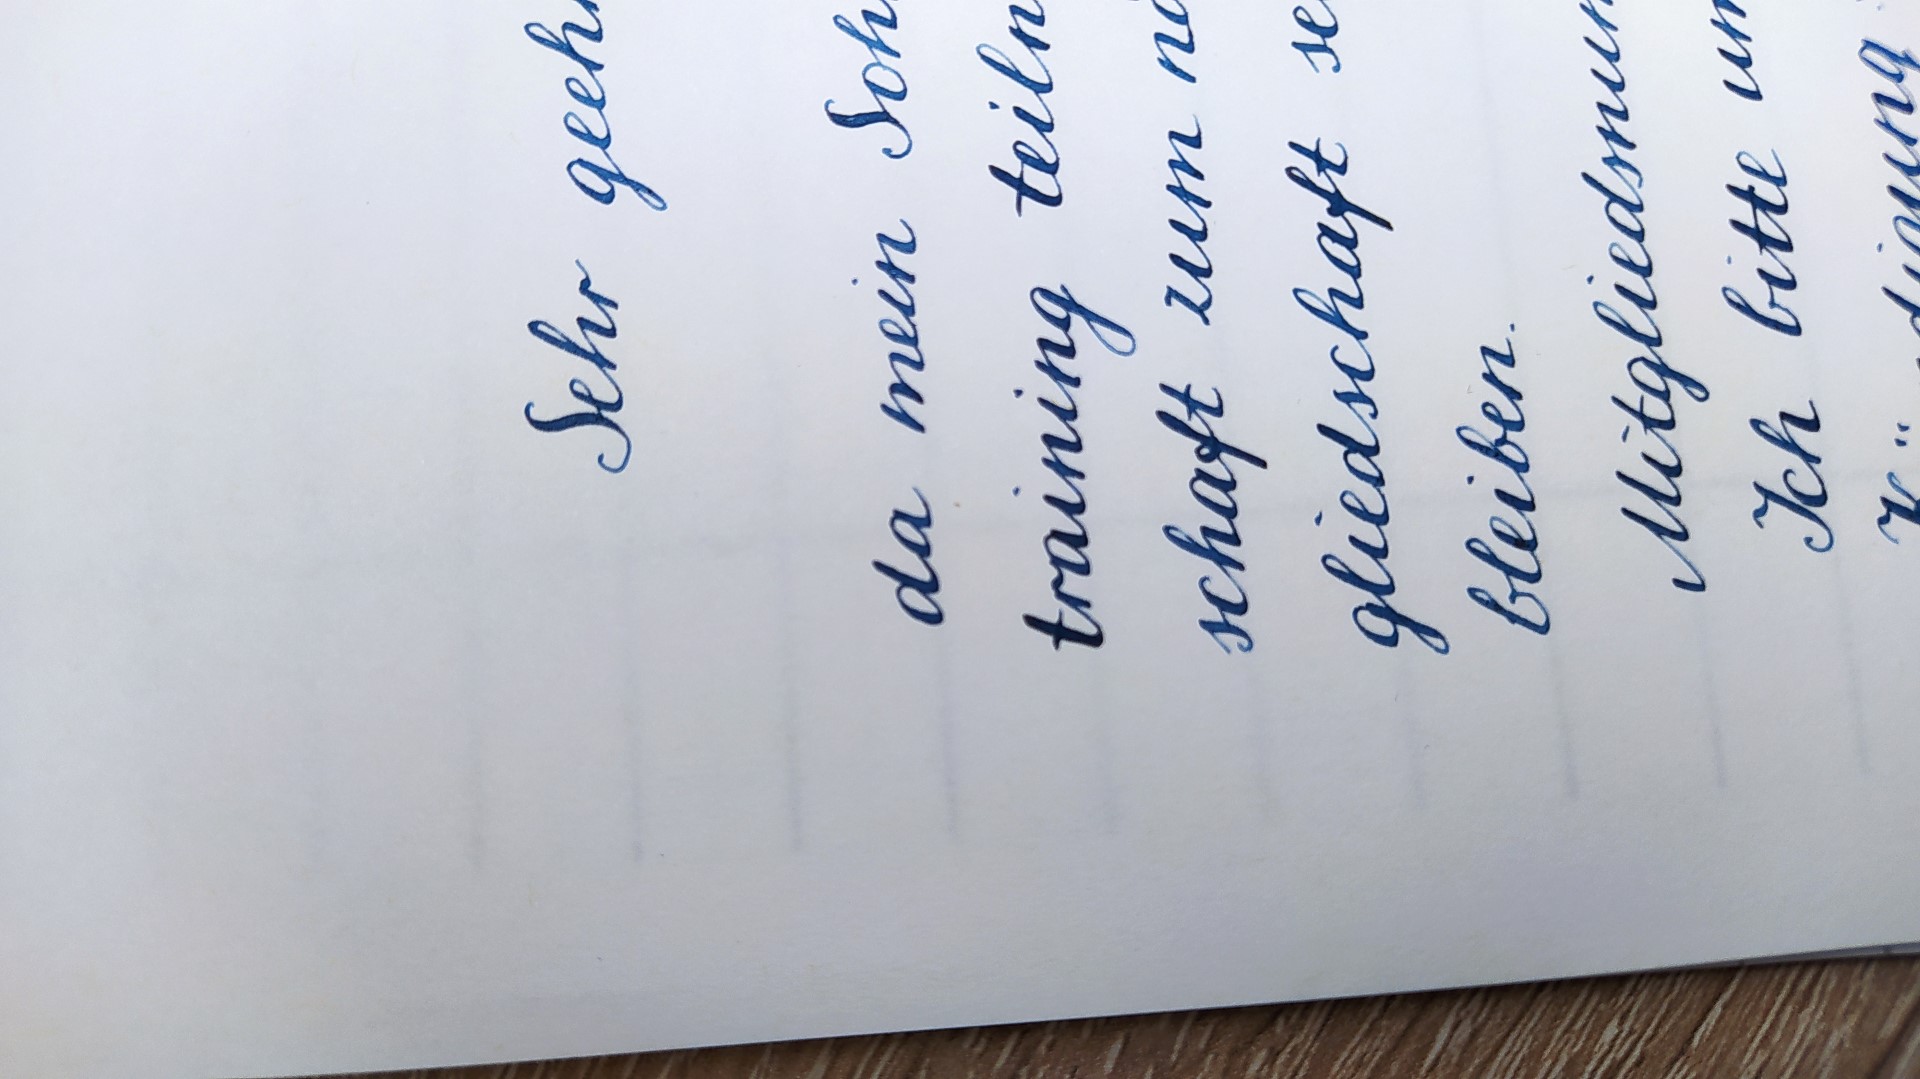 Sehr geeh
da mein Soh
training teiln
schaft zum nä
gliedschaft se
bleiben.
Mitgliedsnum
Ich bitte um